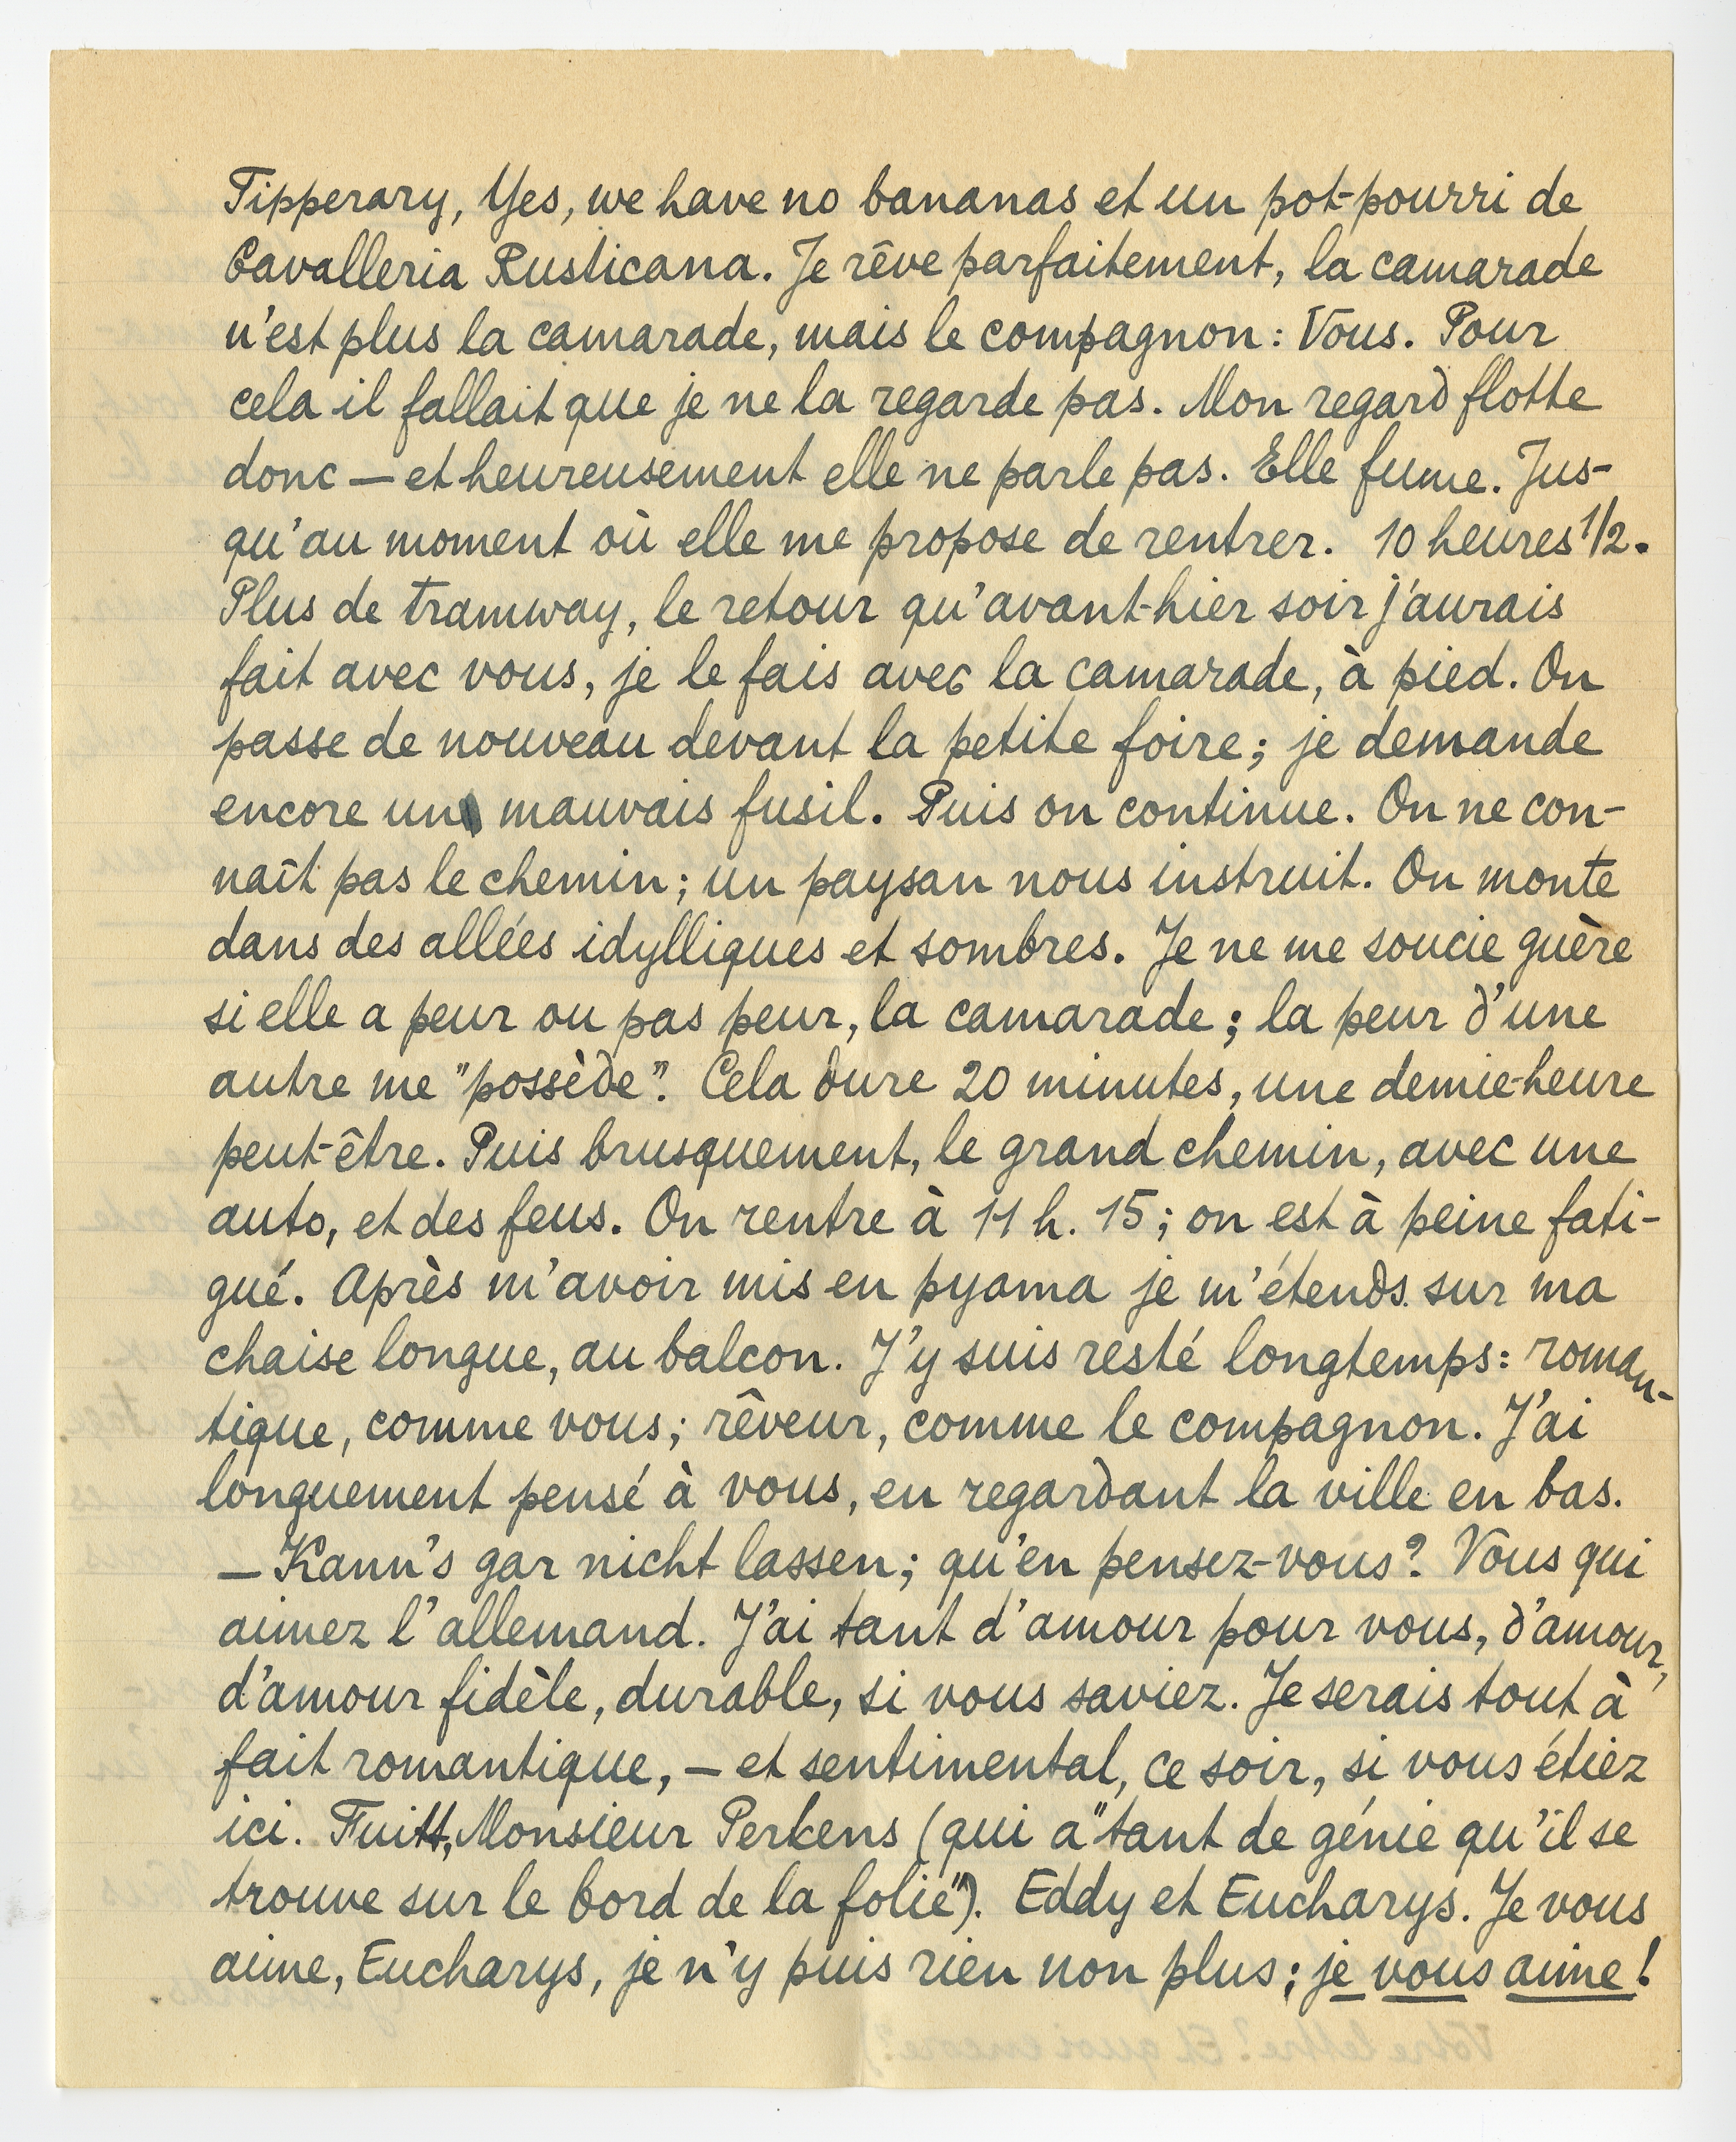 Tipperary, Yes, we have no bananas et un pot-pourri de
Cavalleria Rusticana. Je rêve parfaitement, la camarade
n'est plus la camarade, mais le compagnon: Vous. Pour
cela il fallait que je ne la regarde pas. Mon regard flotte
donc — et heureusement elle ne parle pas. Elle fume. Jus-
qu'au moment où elle me propose de rentrer. 10 heures 1/2.
Plus de tramway, le retour qu'avant-hier soir j'aurais
fait avec vous, je le fais avec la camarade, à pied. On
passe de nouveau devant la petite foire; je demande
encore un mauvais fusil. Puis on continue. On ne con-
naît pas le chemin; un paysan nous instruit. On monte
dans des allées idylliques et sombres. Je ne me soucie guère
si elle a peur ou pas peur, la camarade; la peur d'une
autre me "possède". Cela dure 20 minutes, une demie-heure
peut-être. Puis brusquement, le grand chemin, avec une
auto, et des feus. On rentre à 11 h. 15; on est à peine fati-
gué. Après m'avoir mis en pyama je m'étends sur ma
chaise longue, au balcon. J'y suis resté longtemps: roman-
tique, comme vous; rêveur, comme le compagnon. J'ai
longuement pensé à vous, en regardant la ville en bas.
— Kann's gar nicht lassen; qu'en pensez-vous? Vous qui
aimez l'allemand. J'ai tant d'amour pour vous, d'amour,
d'amour fidèle, durable, si vous saviez. Je serais tout à
fait romantique, — et sentimental, ce soir, si vous étiez
ici. Fuitt, Monsieur Perkens (qui a "tant de génie qu'il se
trouve sur le bord de la folie"). Eddy et Eucharys. Je vous
aime, Eucharys, je n'y puis rien non plus; je vous aime!